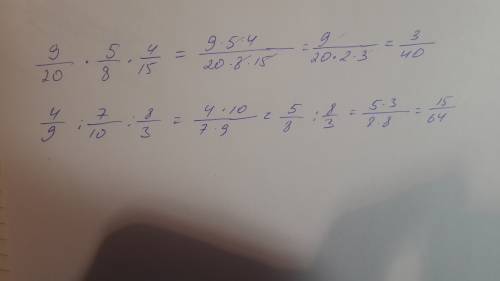 9/20 · 5/8 · 4/15 = 9·5·4/20·8·15 = 9/20·2·3 = 3/40
4/9 : 7/10 : 8/3 = 4·10/7·9 = 5/8 : 8/3 = 5·3/8·8 = 15/64